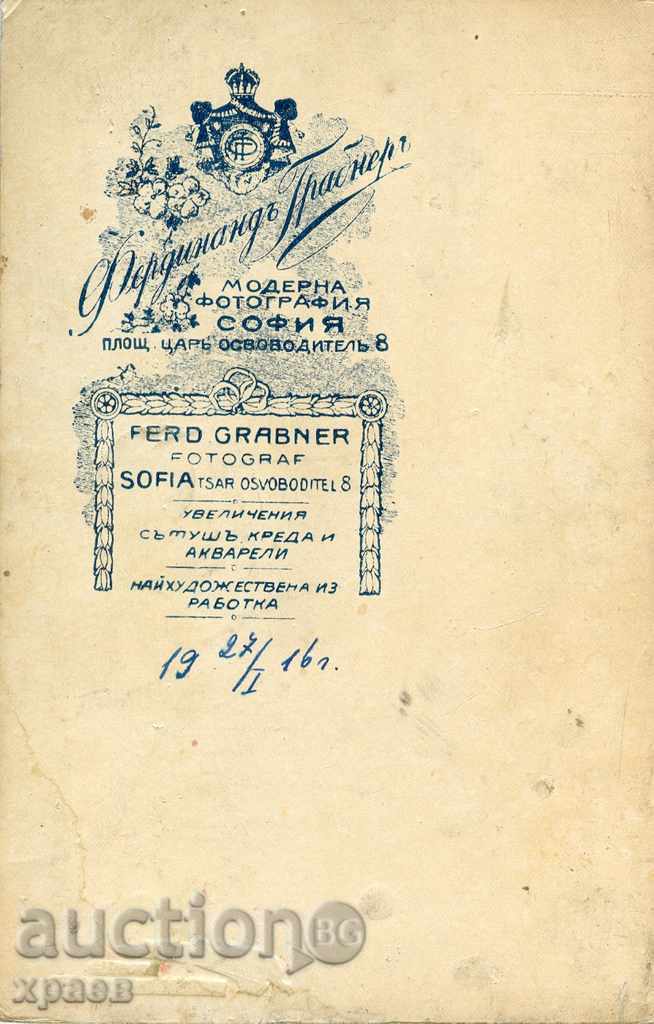 Фердинандъ Грабнеръ
МОДЕРНА
ФОТОГРАФИЯ
СОФИЯ
ПЛОЩ. ЦАРЬ ОСВОБОДИТЕЛЬ 8
FERD GRABNER
FOTOGRAF
SOFIA TSAR OSVOBODITEL 8
УВЕЛИЧЕНИЯ
СЪ ТУШЪ, КРЕДА И
АКВАРЕЛИ
НАЙХУДОЖЕСТВЕНА ИЗ
РАБОТКА
19 27/I 16 г.
auctionBG
храев